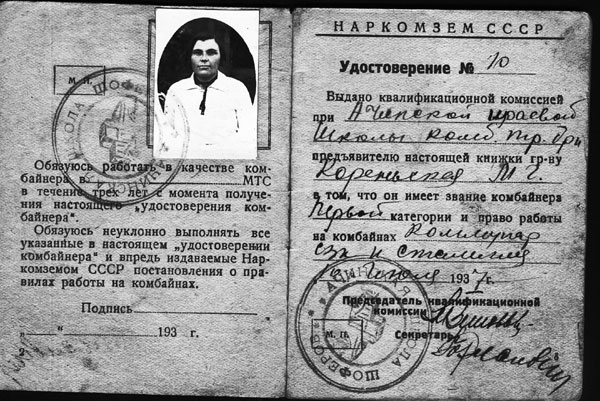 М. П.
ШКОЛА ШОФЕРОВ
Обязуюсь работать в качестве ком-
байнера в МТС
в течение трех лет с момента получе-
ния настоящего „удостоверения ком-
байнера“.
Обязуюсь неуклонно выполнять все
указанные в настоящем „удостоверении
комбайнера“ и впредь издаваемые Нар-
комземом СССР постановления о пра-
вилах работы на комбайнах.
Подпись
„ “ 193 г.
2
НАРКОМЗЕМ СССР
Удостоверение № 10
Выдано квалификационной комиссией
при Ачинской краевой
Школы комб.
предъявителю настоящей книжки гр-ну
М. Г.
в том, что он имеет звание комбайнера
Первой категории и право работы
на комбайнах Коммунар
сзк и сталинец
193 7 г.
Председатель квалификационной
комиссии
М. П. Секретарь
АЧИНСКАЯ ШКОЛА ШОФЕРОВ